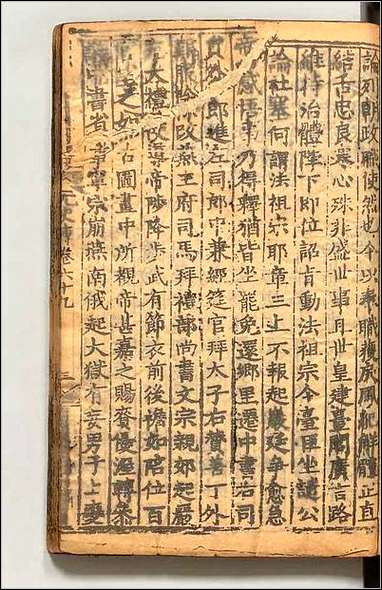 論列朝政歐使然也今以奉職獲戾風紀解體正直
結舌忠良寒心殊非盛世事且世皇建臺閣廣言路
維持治體陛下即位詔旨動法祖宗今臺臣坐譴公
論杜塞何謂法祖宗耶章三上不報起巖廷爭愈急
帝感悟事乃得釋猶皆坐罷免還鄉里遷中書右司
員外郎進左司郎中兼經筵官拜太子右贊善丁外
服除改燕王府司馬拜禮部尚書文宗親郊起巖
大禮使導帝陟降步武有節衣前後襜如陪位百
之如古圖畫中所覩帝甚嘉之賜賚優渥轉參
中書省事寧宗崩燕南俄起大獄有妄男子上變
卷六十九
三